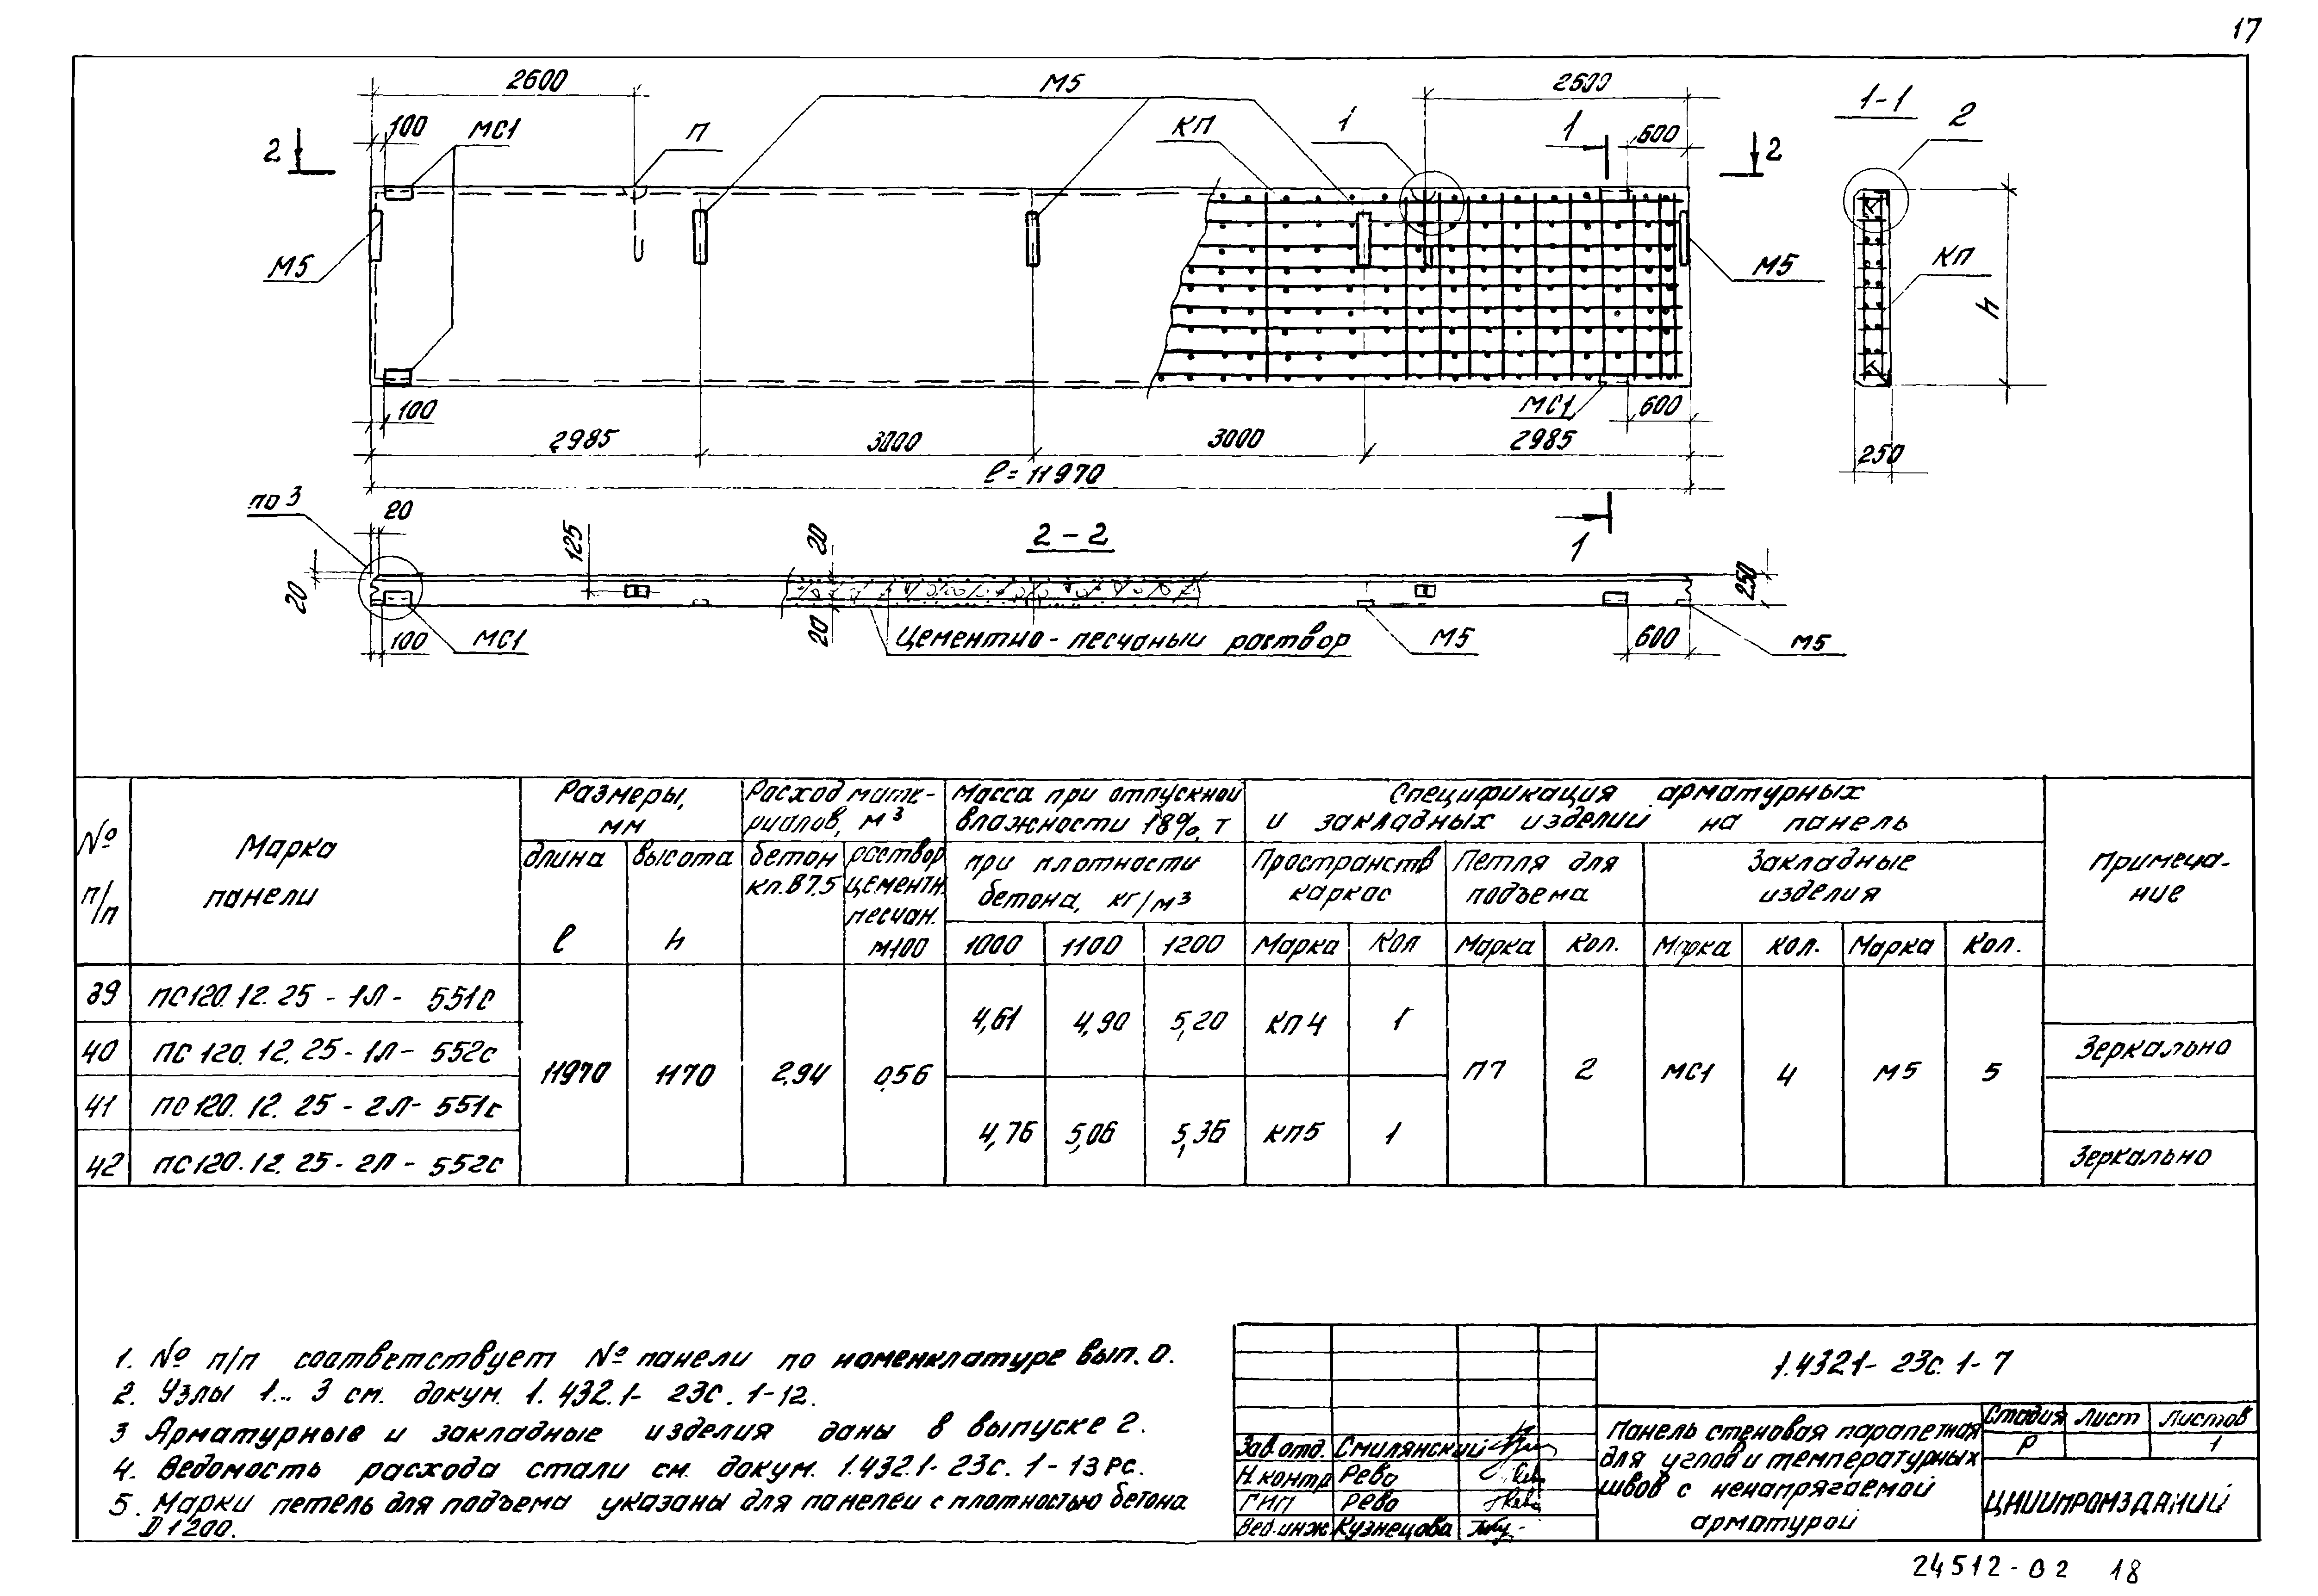 17
2600
М5
2600
1-1
2
100
МС1
П
КП
1
1
600
2
2
М5
М5
КП
h
100
МС1
600
2985
3000
3000
2985
250
ℓ = 11970
по 3
20
125
20
2 - 2
1
20
250
20
100
МС1
Цементно - песчаный раствор
М5
600
М5
№ п/п
Марка панели
Размеры, мм
Расход мате-
риалов, м³
Масса при отпускной
влажности 18%, т
Спецификация арматурных
и закладных изделий на панель
Примеча-
ние
длина
ℓ
высота
h
бетон
кл. В7,5
раствор
цементн.
песчан.
М100
при плотности
бетона, кг/м³
Пространств
каркас
Петля для
подъема
Закладные
изделия
1000 1100 1200 Марка Кол Марка Кол. Марка Кол. Марка Кол.
39 ПС120.12.25 - 1Л - 551с
4,61 4,90 5,20 КП4 1
40 ПС120.12.25 - 1Л - 552с Зеркально
11970 1170 2,94 0,56 П7 2 МС1 4 М5 5
41 ПС120.12.25 - 2Л - 551с
4,76 5,06 5,36 КП5 1
42 ПС120.12.25 - 2Л - 552с Зеркально
1. № п/п соответствует № панели по номенклатуре вып. 0.
2. Узлы 1... 3 см. докум. 1.432.1- 23с.1-12.
3 Арматурные и закладные изделия даны в выпуске 2.
4. Ведомость расхода стали см. докум. 1.432.1- 23с. 1-13РС.
5. Марки петель для подъема указаны для панелей с плотностью бетона
D1200.
1.432.1- 23с. 1-7
Зав. отд. Смилянский
Н.контр Рево
ГИП Рево
Вед. инж. Кузнецова
Панель стеновая парапетная
для углов и температурных
швов с ненапрягаемой
арматурой
Стадия Лист Листов
Р 1
ЦНИИПРОМЗДАНИЙ
24512-02 18